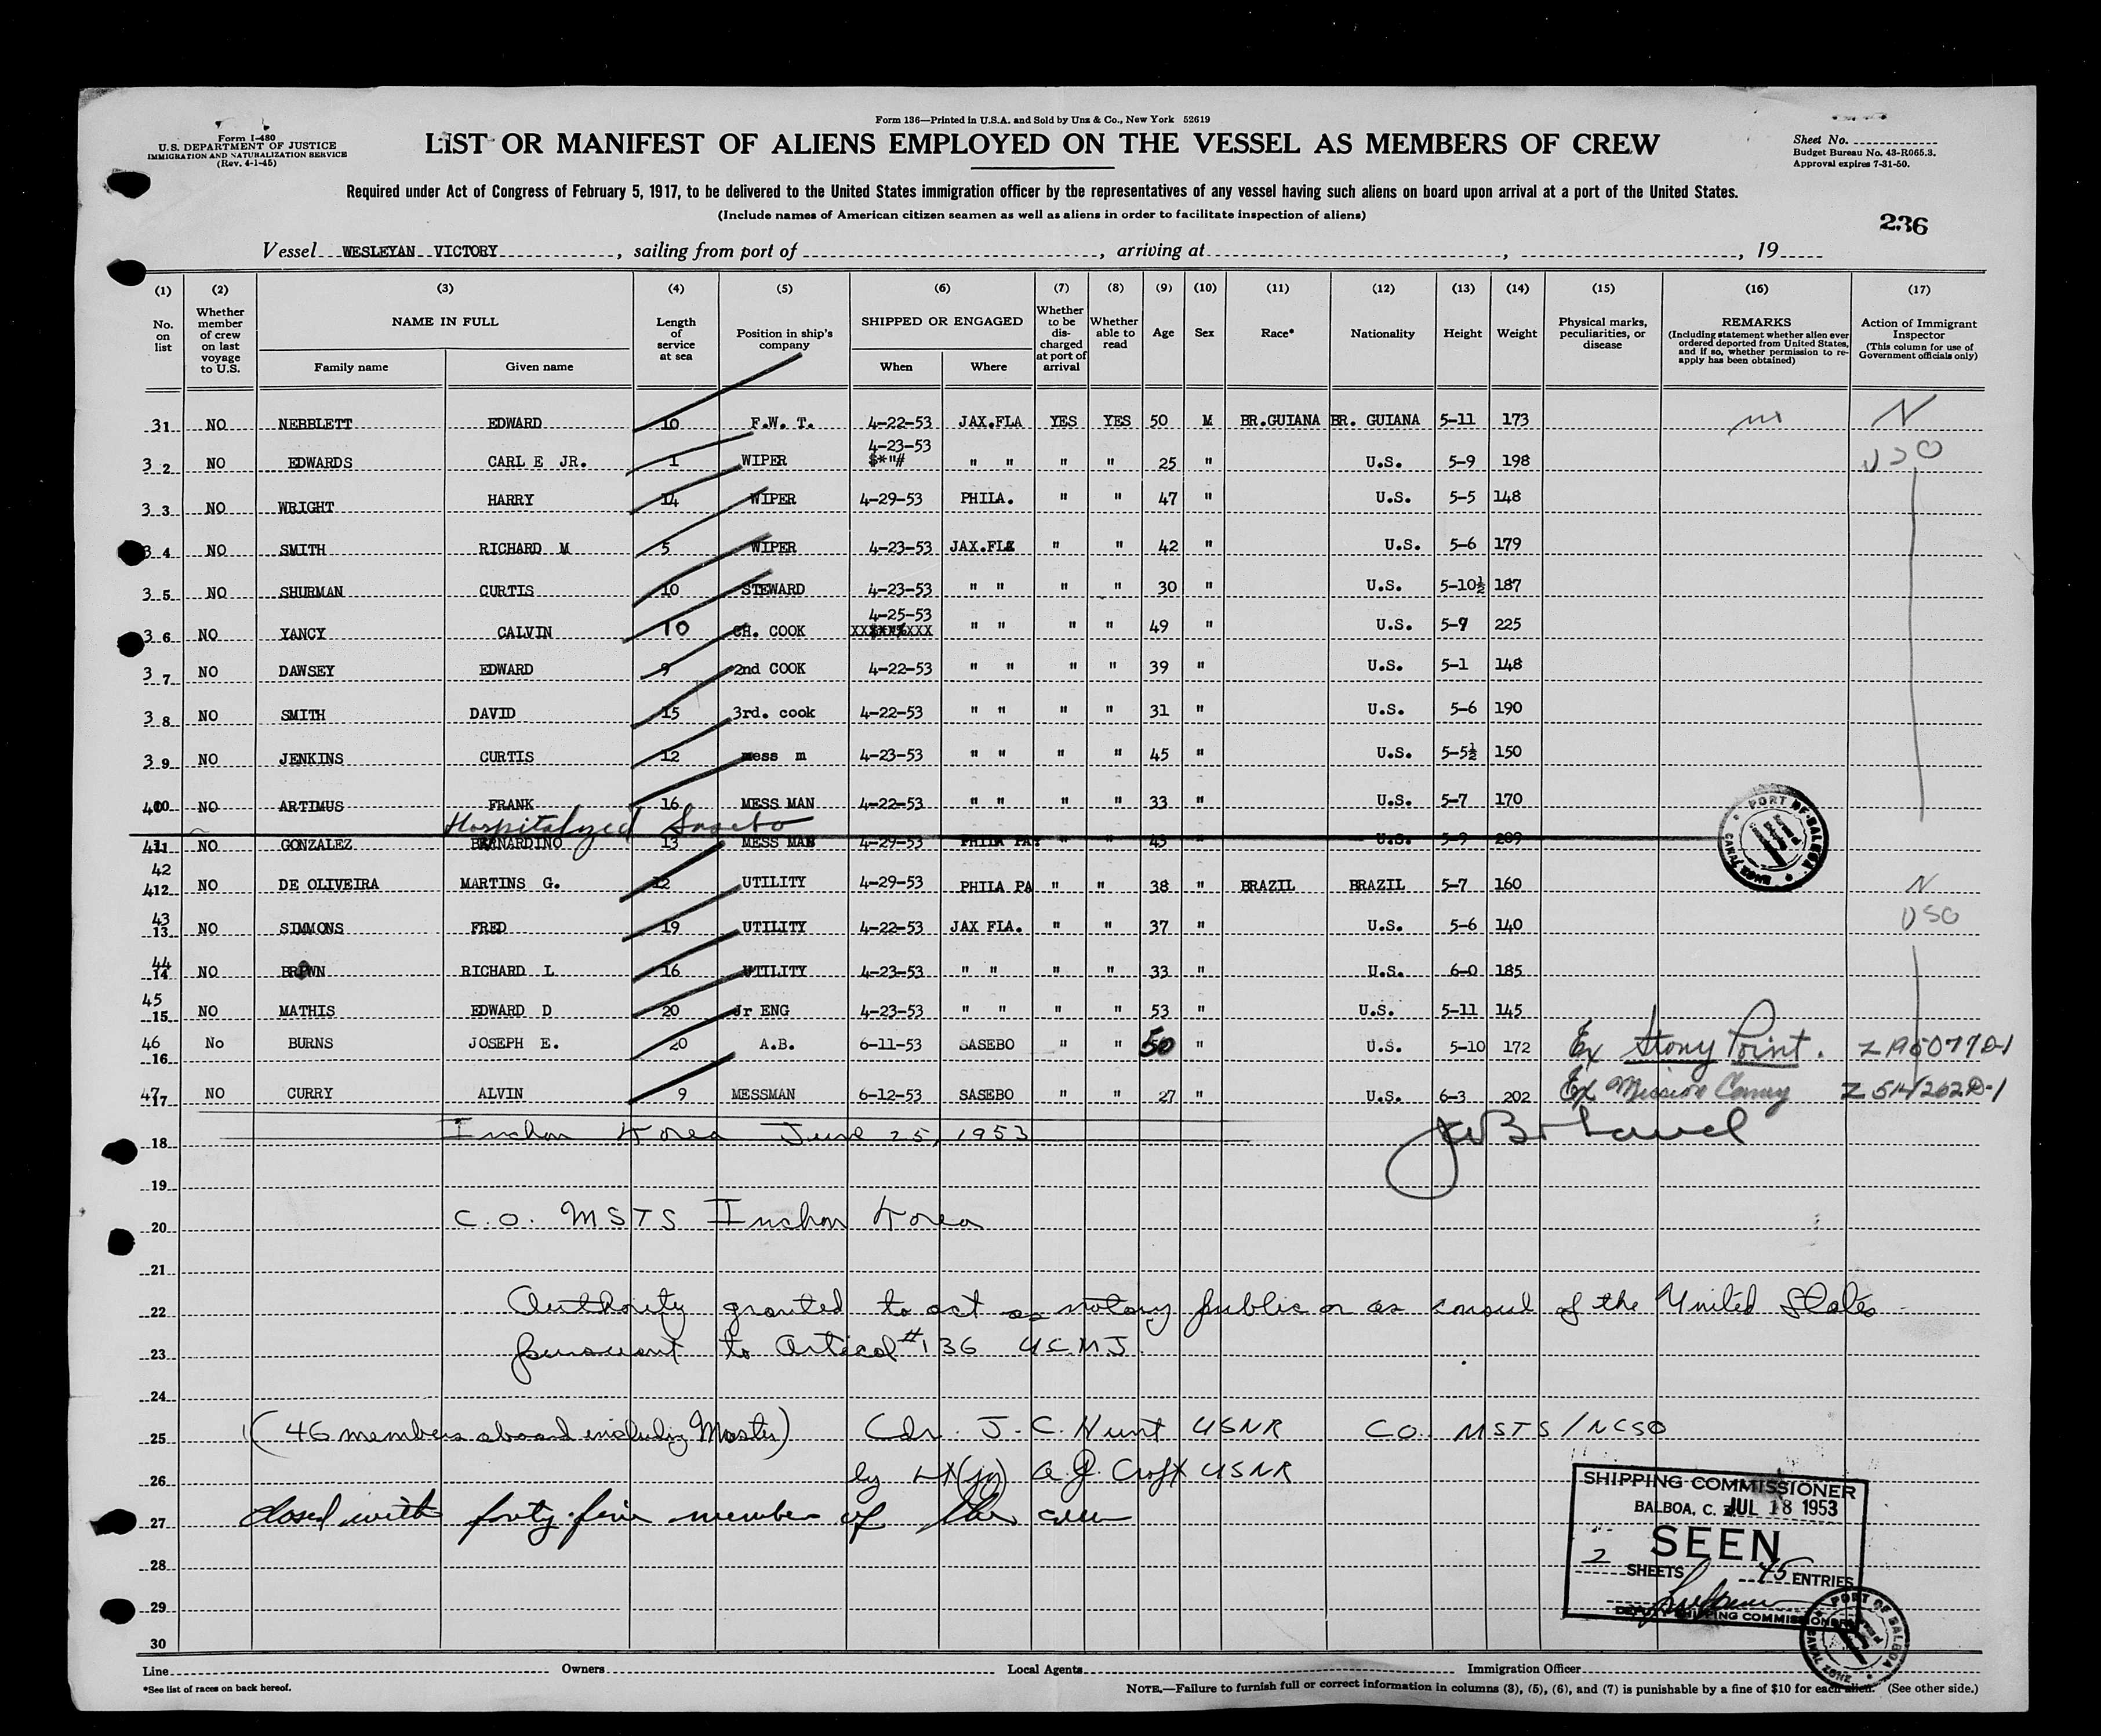 Form I-480
U.S. DEPARTMENT OF JUSTICE
IMMIGRATION AND NATURALIZATION SERVICE
(Rev. 4-1-45)
Form 136—Printed in U.S.A. and Sold by Unz & Co., New York 52619
LIST OR MANIFEST OF ALIENS EMPLOYED ON THE VESSEL AS MEMBERS OF CREW
Sheet No.
Budget Bureau No. 43-R065.3.
Approval expires 7-31-50.
Required under Act of Congress of February 5, 1917, to be delivered to the United States immigration officer by the representatives of any vessel having such aliens on board upon arrival at a port of the United States.
(Include names of American citizen seamen as well as aliens in order to facilitate inspection of aliens)
236
Vessel WESLEYAN VICTORY, sailing from port of , arriving at , , 19
(1) (2) (3) (4) (5) (6) (7) (8) (9) (10) (11) (12) (13) (14) (15) (16) (17)
No. on list
Whether member of crew on last voyage to U.S.
NAME IN FULL
Family name Given name
Length of service at sea
Position in ship's company
SHIPPED OR ENGAGED
When Where
Whether to be discharged at port of arrival
Whether able to read
Age
Sex
Race*
Nationality
Height
Weight
Physical marks, peculiarities, or disease
REMARKS
(Including statement whether alien ever ordered deported from United States, and if so, whether permission to reapply has been obtained)
Action of Immigrant Inspector
(This column for use of Government officials only)
31 NO NEBBLETT EDWARD 10 F.W. T. 4-22-53 JAX.FLA YES YES 50 M BR.GUIANA BR. GUIANA 5-11 173 N
4-23-53
32 NO EDWARDS CARL E JR. 1 WIPER $*"# " " " " 25 " U.S. 5-9 198 USO
33 NO WRIGHT HARRY 14 WIPER 4-29-53 PHILA. " " 47 " U.S. 5-5 148
34 NO SMITH RICHARD M 5 WIPER 4-23-53 JAX.FL " " 42 " U.S. 5-6 179
35 NO SHURMAN CURTIS 10 STEWARD 4-23-53 " " " " 30 " U.S. 5-10½ 187
4-25-53
36 NO YANCY CALVIN 10 CH. COOK " " " " 49 " U.S. 5-9 225
37 NO DAWSEY EDWARD 9 2nd COOK 4-22-53 " " " " 39 " U.S. 5-1 148
38 NO SMITH DAVID 15 3rd. cook 4-22-53 " " " " 31 " U.S. 5-6 190
39 NO JENKINS CURTIS 12 mess m 4-23-53 " " " " 45 " U.S. 5-5½ 150
40 NO ARTIMUS FRANK 16 MESS MAN 4-22-53 " " " " 33 " U.S. 5-7 170
Hospitalized Sasebo
41 NO GONZALEZ BERNARDINO 13 MESS MAN 4-29-53 PHILA PA. " " 43 " U.S. 5-9 209
PORT OF BALBOA CANAL ZONE
42
412 NO DE OLIVEIRA MARTINS G. 12 UTILITY 4-29-53 PHILA PA " " 38 " BRAZIL BRAZIL 5-7 160 N
43
13 NO SIMMONS FRED 19 UTILITY 4-22-53 JAX FLA. " " 37 " U.S. 5-6 140 USO
44
14 NO BROWN RICHARD L 16 UTILITY 4-23-53 " " " " 33 " U.S. 6-0 185
45
15 NO MATHIS EDWARD D 20 Jr ENG 4-23-53 " " " " 53 " U.S. 5-11 145
46 No BURNS JOSEPH E. 20 A.B. 6-11-53 SASEBO " " 50 " U.S. 5-10 172 Ex Stony Point.
16
47 NO CURRY ALVIN 9 MESSMAN 6-12-53 SASEBO " " 27 " U.S. 6-3 202 Ex Mission
17
Inchon Korea June 25, 1953
18
19
20 C.O. MSTS Inchon Korea
21
22 Authority granted to act as notary public or as consul of the United States
23 pursuant to Artical #136 UCMJ.
24
25 (46 members aboard including Master) Cdr. J. C. Hunt USNR C.O. MSTS/NCSO
26 by Lt(jg) A.J. Croft USNR
27 closed with forty five member of the crew
28
29
30
SHIPPING COMMISSIONER
BALBOA, C. Z. JUL 18 1953
SEEN
2 SHEETS 45 ENTRIES
DEPUTY SHIPPING COMMISSIONER
PORT OF BALBOA CANAL ZONE
Line Owners Local Agents Immigration Officer
*See list of races on back hereof.
NOTE.—Failure to furnish full or correct information in columns (3), (5), (6), and (7) is punishable by a fine of $10 for each alien. (See other side.)